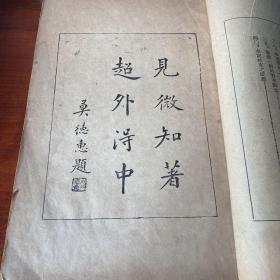 見微知著
超外得中
莫德惠題